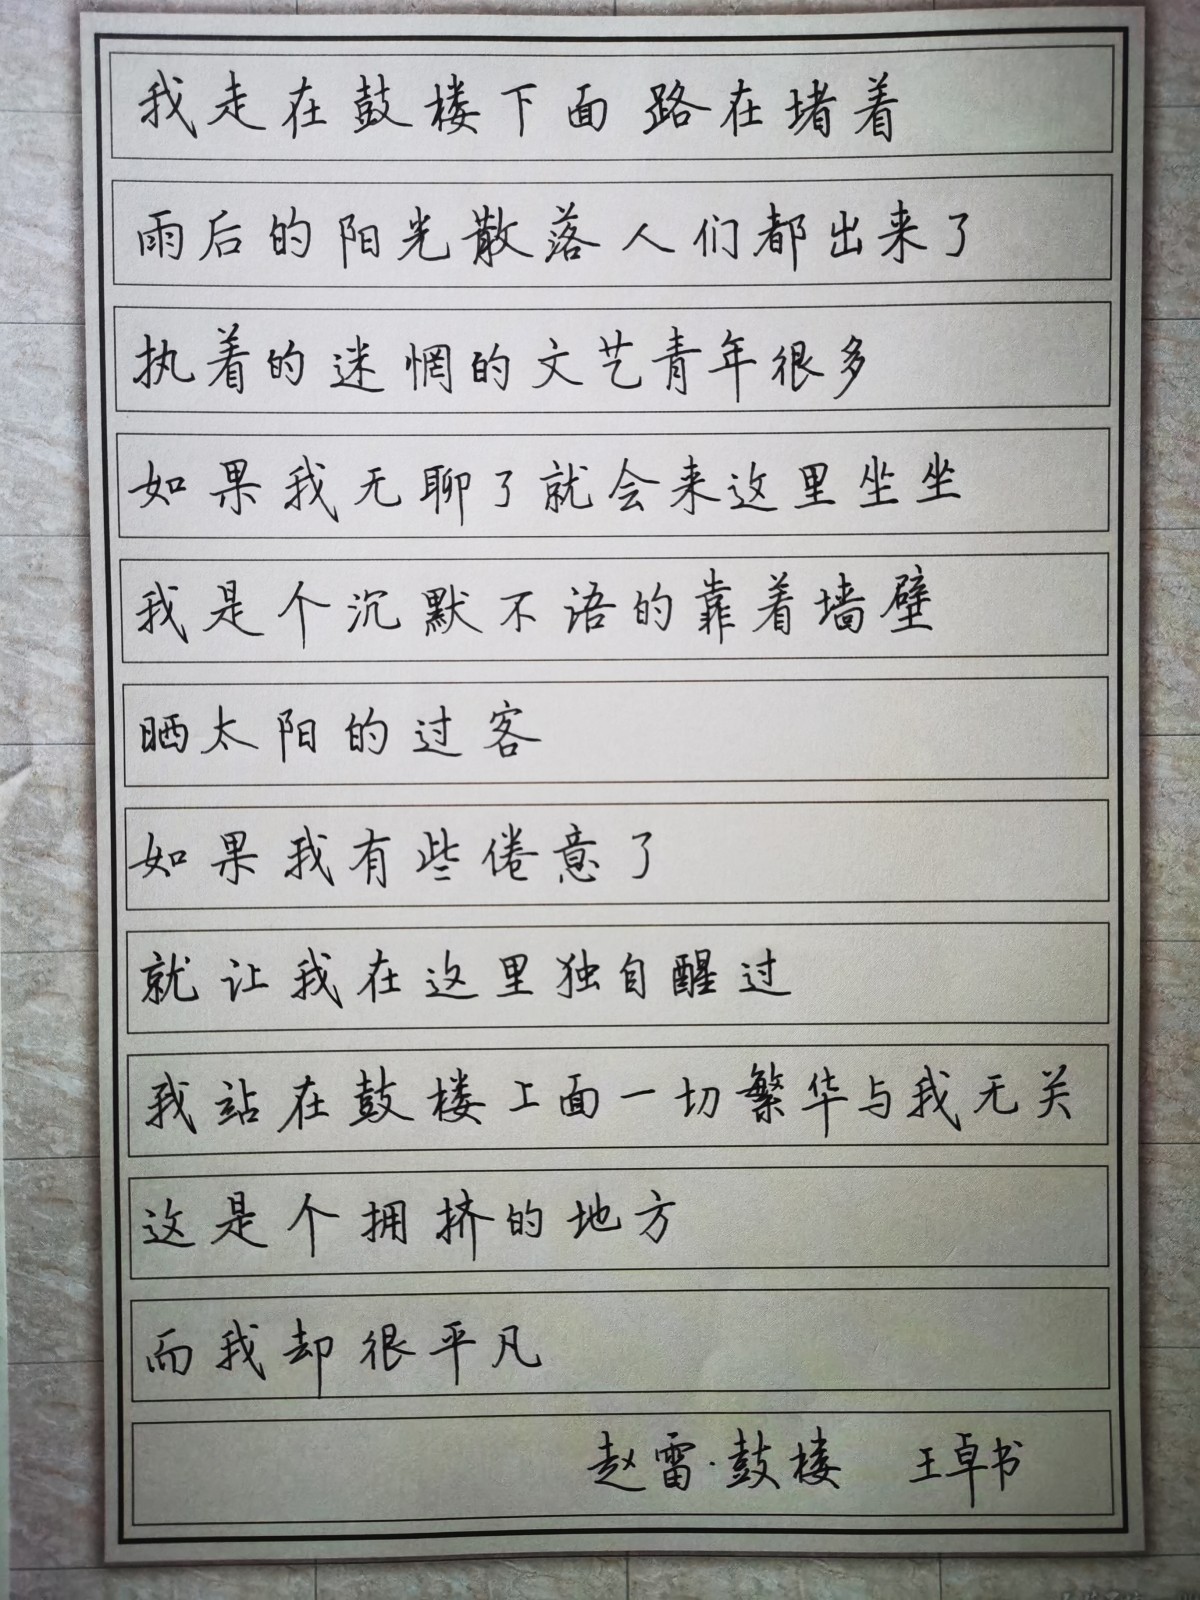 我走在鼓楼下面 路在堵着
雨后的阳光散落人们都出来了
执着的迷惘的文艺青年很多
如果我无聊了就会来这里坐坐
我是个沉默不语的靠着墙壁
晒太阳的过客
如果我有些倦意了
就让我在这里独自醒过
我站在鼓楼上面一切繁华与我无关
这是个拥挤的地方
而我却很平凡
赵雷·鼓楼 王卓书